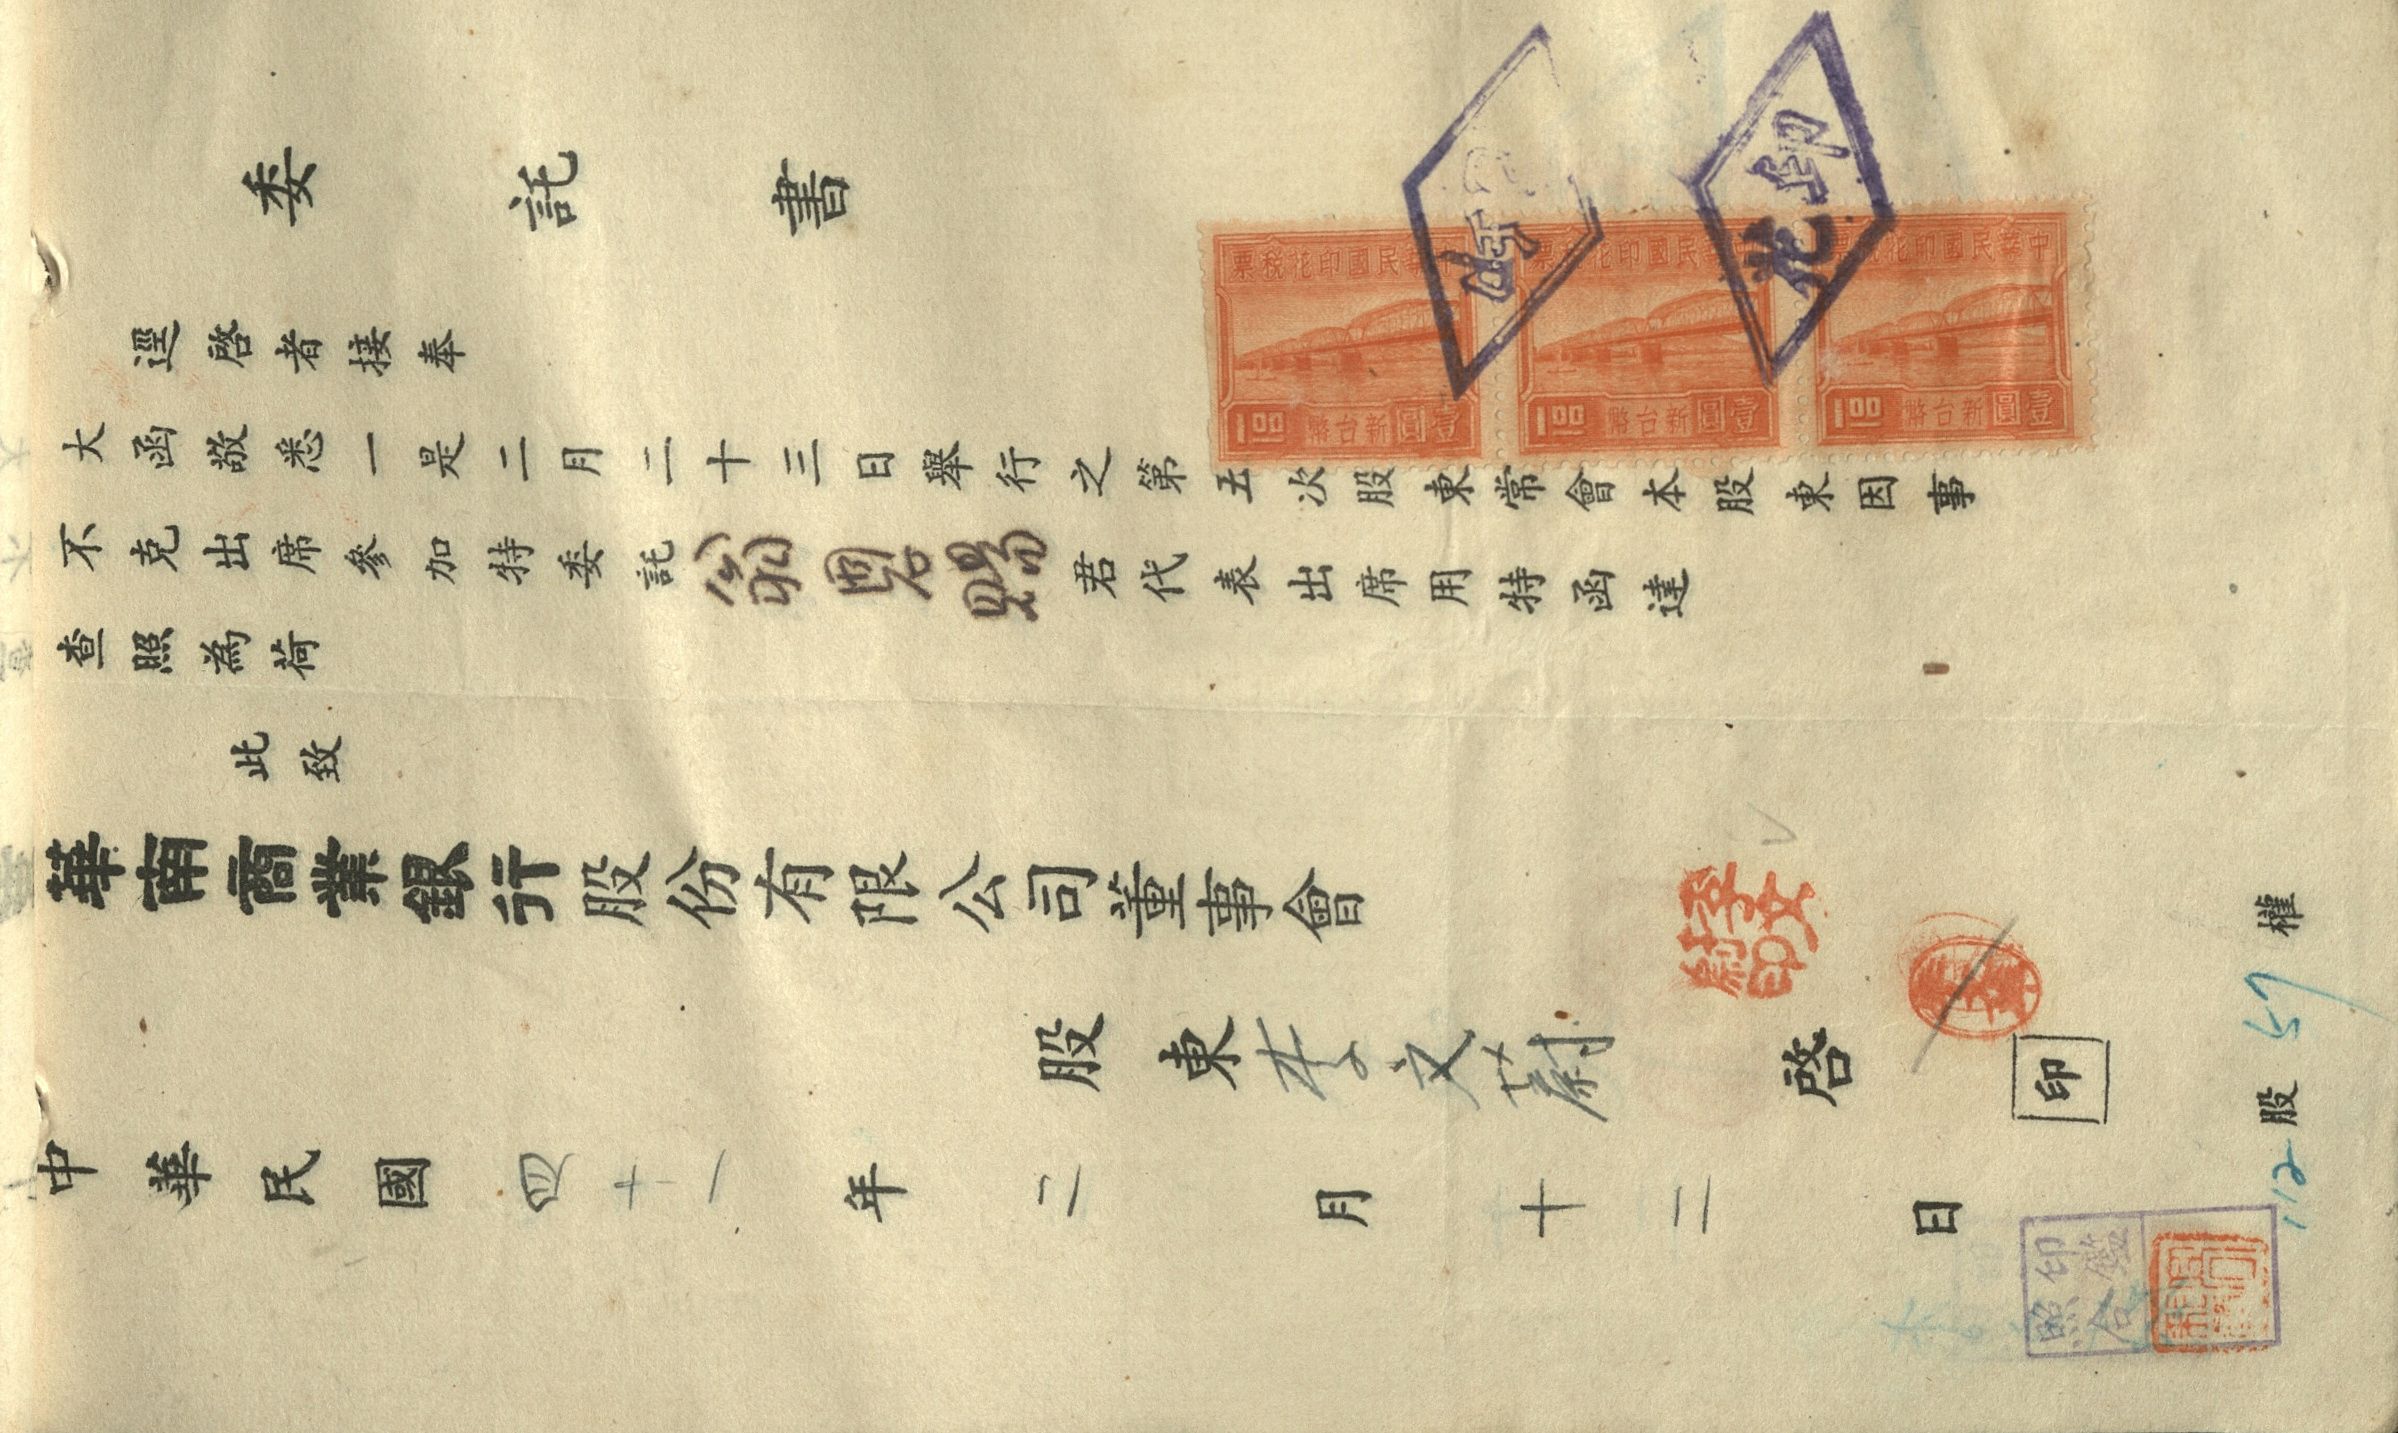 委託書
逕啓者接奉
大函敬悉一是二月二十三日舉行之第五次股東常會本股東因事
不克出席參加特委託翁恩賜君代表出席用特函達
查照為荷
此致
華南商業銀行股份有限公司董事會
股東李文蔚啓 印
中華民國四十一年二月十二日
112股57權
中華民國印花稅票
壹圓 新台幣 1.00
中華民國印花稅票
壹圓 新台幣 1.00
中華民國印花稅票
壹圓 新台幣 1.00
印花
李文蔚印
印鑑
照合